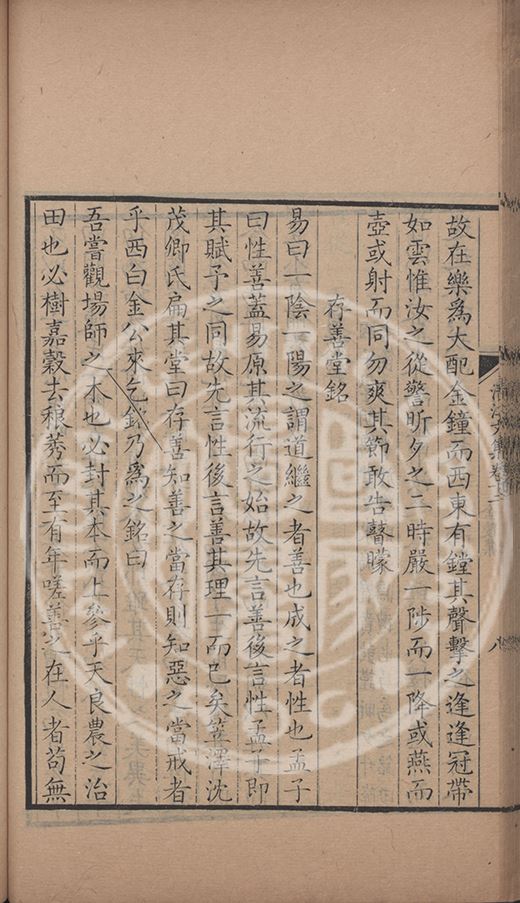 故在樂爲大配金鐘而西東有鏜其聲擊之逢逢冠帶
如雲惟汝之從警昕夕之二時嚴一陟而一降或燕而
壺或射而同勿爽其節敢告瞽矇
存善堂銘
易曰一陰一陽之謂道繼之者善也成之者性也孟子
曰性善蓋易原其流行之始故先言善後言性孟子即
其賦予之同故先言性後言善其理一而已矣笠澤沈
茂卿氏扁其堂曰存善知善之當存則知惡之當戒者
乎西白金公來乞銘乃爲之銘曰
吾嘗觀場師之木也必封其本而上參乎天良農之治
田也必樹嘉穀去稂莠而至有年嗟善之在人者苟無